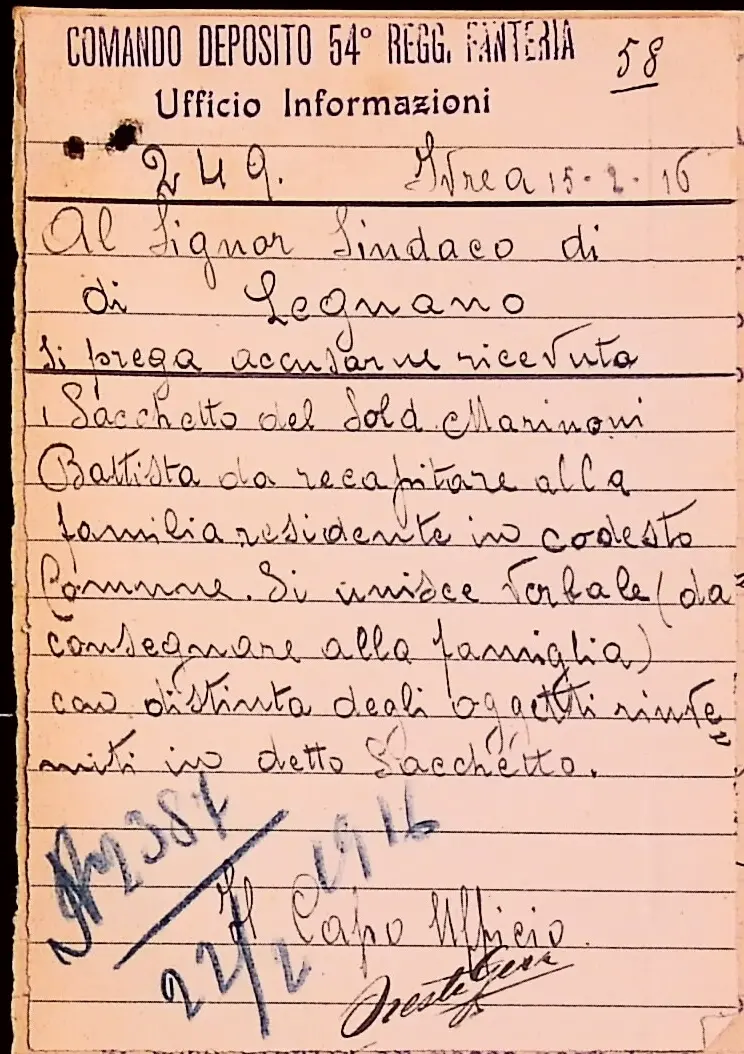 COMANDO DEPOSITO 54° REGG. FANTERIA
58
Ufficio Informazioni
249. Ivrea 15-2-16
Al Signor Sindaco di
di Legnano
Si prega accusarne ricevuta
1 Sacchetto del Sold. Marinoni
Battista da recapitare alla
familia residente in codesto
Comune. Si unisce verbale (da
consegnare alla famiglia)
con distinta degli oggetti rinve=
nuti in detto Sacchetto.
2387
22/2 1916
Il Capo Ufficio.
Oreste